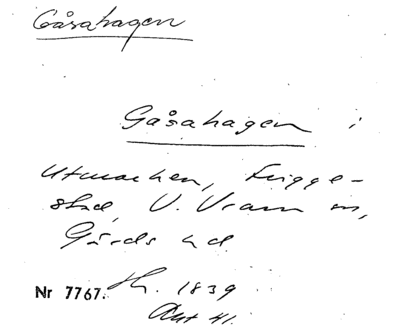 Gåsahagen
Gåsahagen i
Utmarken, Frigge-
stad, V. Vram sn,
Gärds hd
Nr 7767. 1839
Akt 41.